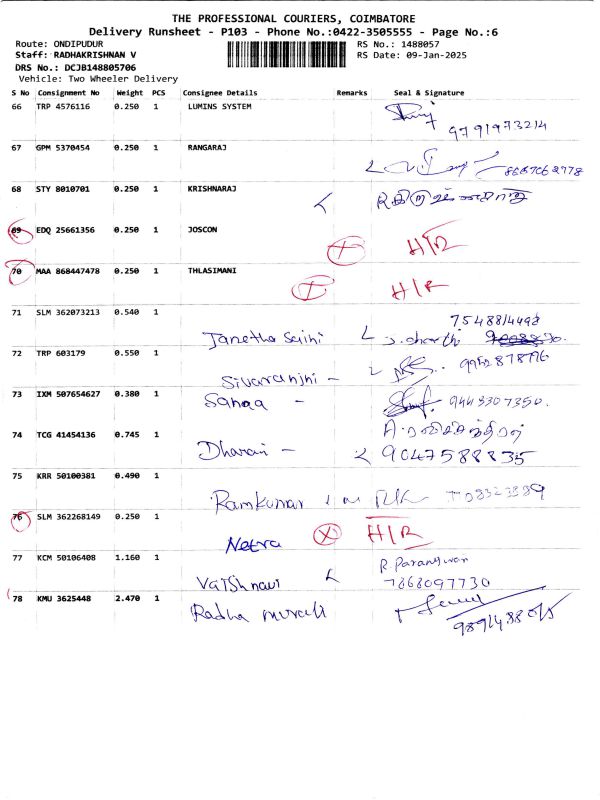 THE PROFESSIONAL COURIERS, COIMBATORE
Delivery Runsheet - P103 - Phone No.:0422-3505555 - Page No.:6
Route: ONDIPUDUR
RS No.: 1488057
Staff: RADHAKRISHNAN V
RS Date: 09-Jan-2025
DRS No.: DCJB148805706
Vehicle: Two Wheeler Delivery
S No Consignment No Weight PCS Consignee Details Remarks Seal & Signature
66 TRP 4576116 0.250 1 LUMINS SYSTEM
9791973214
67 GPM 5370454 0.250 1 RANGARAJ
8667062778
68 STY 8010701 0.250 1 KRISHNARAJ
69 EDQ 25661356 0.250 1 JOSCON
H/R
70 MAA 868447478 0.250 1 THLASIMANI
H/R
71 SLM 362073213 0.540 1
7548814498
72 TRP 603179 0.550 1
Sivaranjni -
73 IXM 507654627 0.380 1
Sanaa - 9443307350.
74 TCG 41454136 0.745 1
Dharani - 9047588835
75 KRR 50100381 0.490 1
Ramkumar
76 SLM 362268149 0.250 1 H/R
Netra
77 KCM 50106408 1.160 1
Vaishnavi 7668097730
78 KMU 3625448 2.470 1
Radha murali